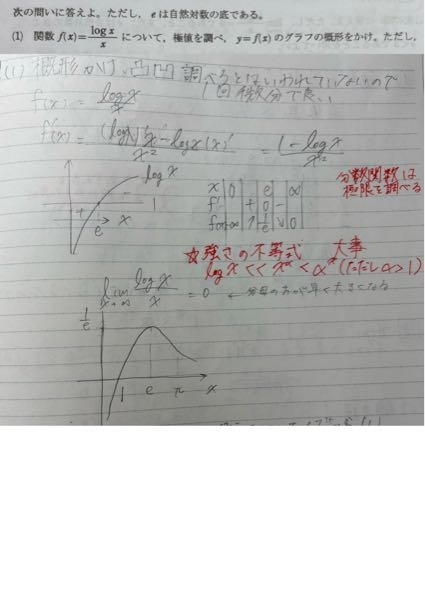 次の問いに答えよ。ただし，eは自然対数の底である。
(1) 関数 f(x)=log x/x について，極値を調べ，y=f(x)のグラフの概形をかけ。ただし，
(1) 概形かけ、凸凹調べろとはいわれていないので
1回微分で良い
f(x) = logx/x
f'(x) = (logx)'x - logx(x)'/x² = 1-logx/x²
logx
1
+ -
e x
x 0 e ∞
f' + 0 -
f(x) -∞ ↗ 1/e ↘ 0
分数関数は
極限を調べる
強さの不等式 大事
logx << x^α < α^x (ただしα>1)
lim x→∞ logx/x = 0 ← 分母の方が早く大きくなる
1/e
1 e π x